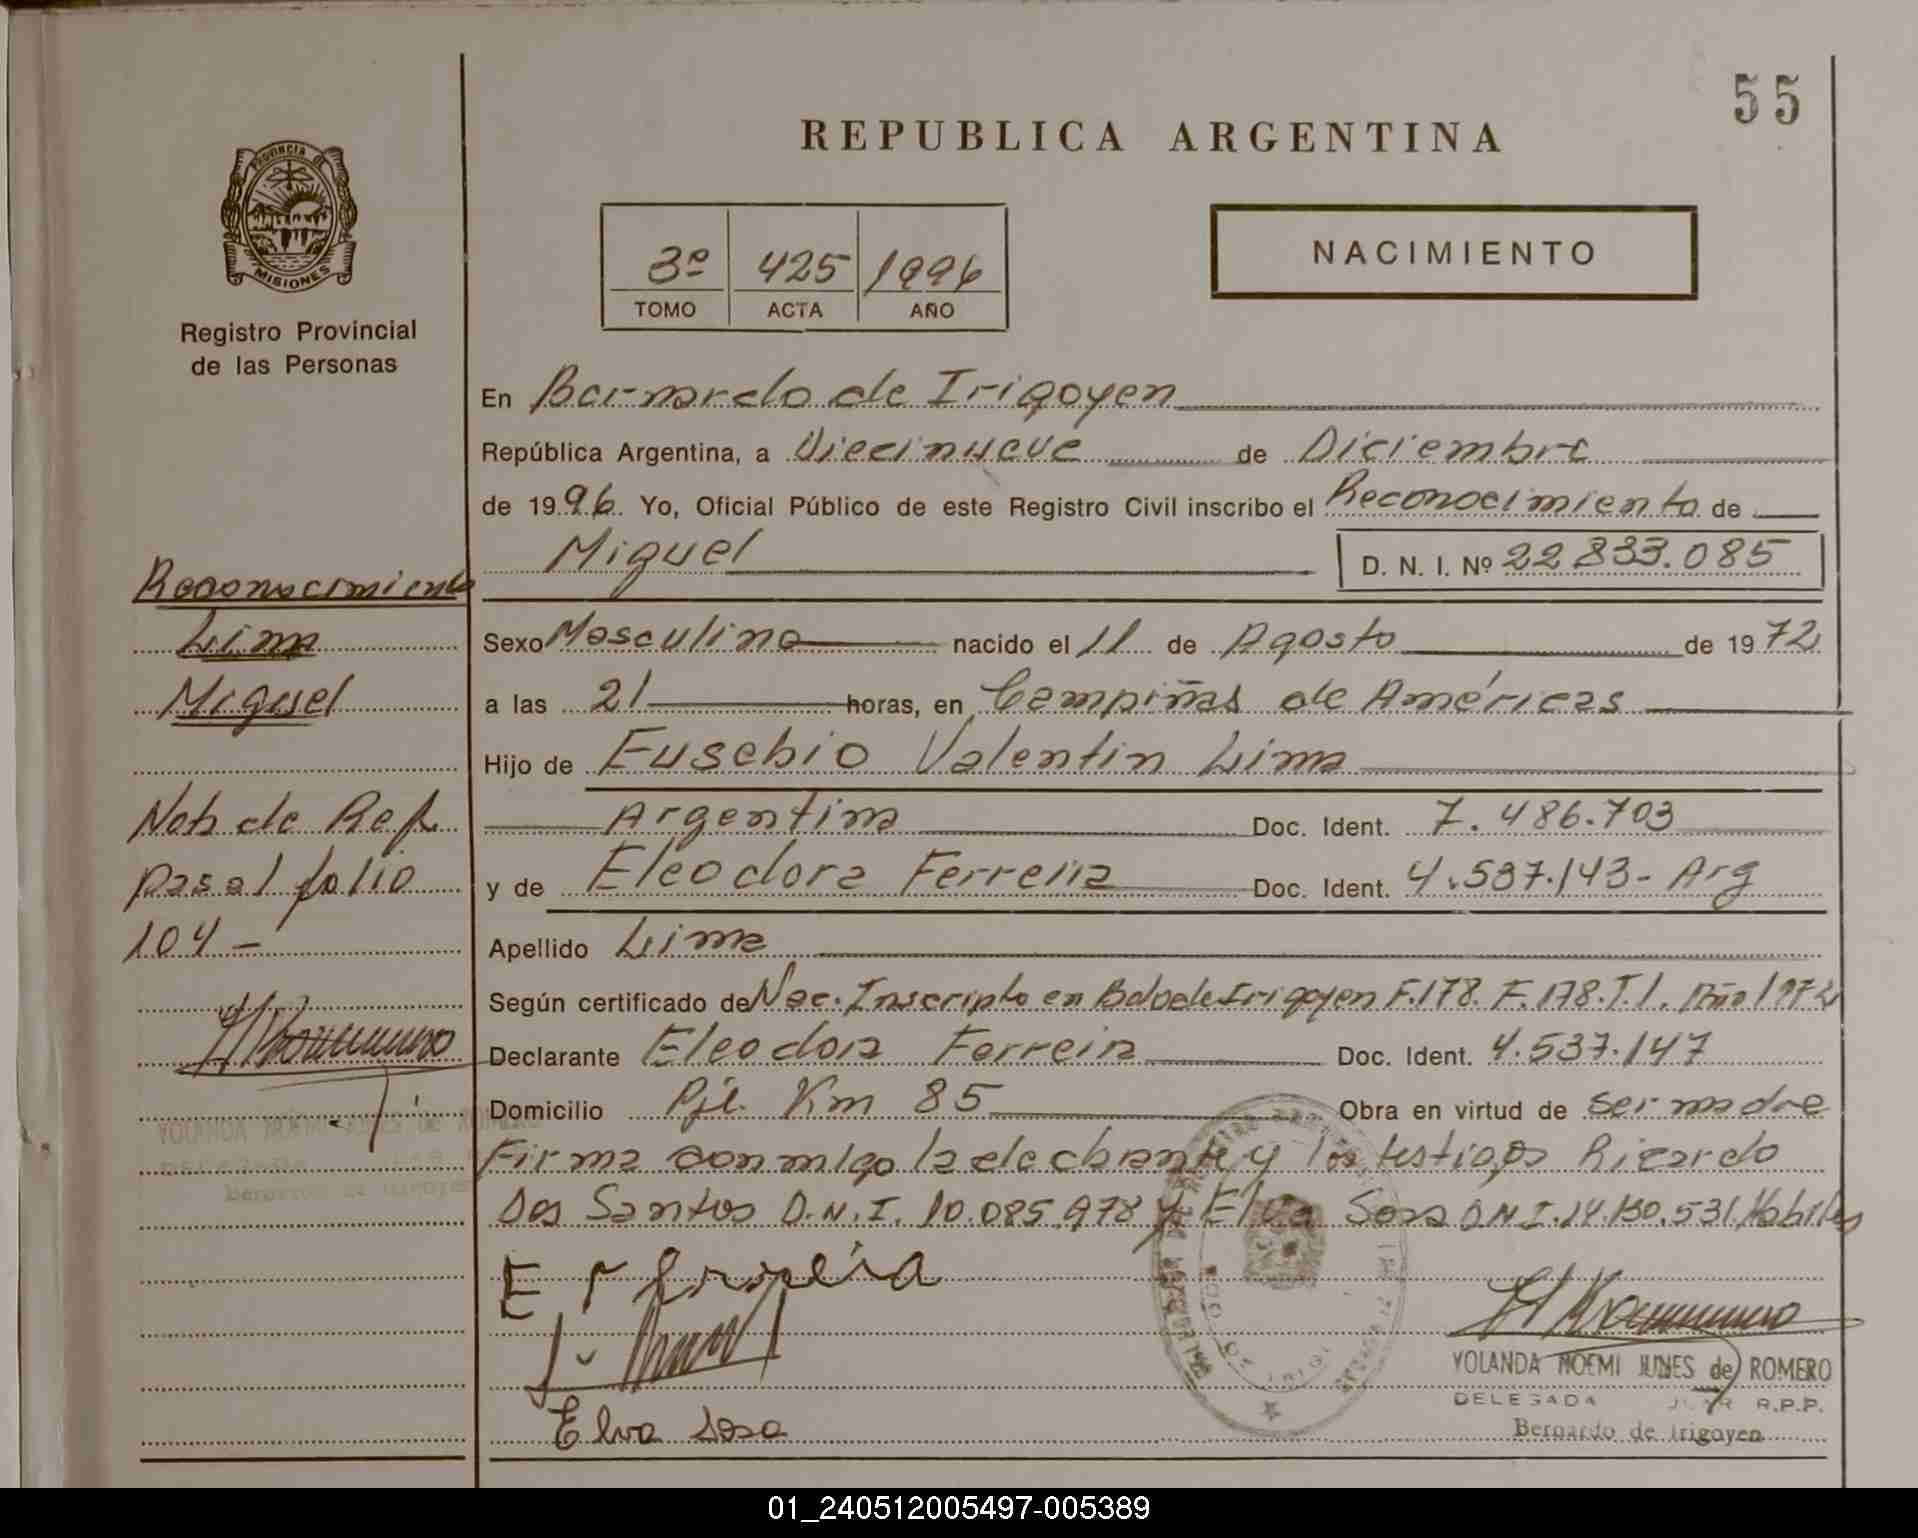 55
REPUBLICA ARGENTINA
PROVINCIA DE
MISIONES
Registro Provincial
de las Personas
3º 425 1996
TOMO ACTA AÑO
NACIMIENTO
En Bernardo de Irigoyen
República Argentina, a Diecinueve de Diciembre
de 1996. Yo, Oficial Público de este Registro Civil inscribo el Reconocimiento de
Miguel D. N. I. Nº 22 833.085
Reconocimiento
Lima
Miguel
Nota de Ref
pasa al folio
104 -
Sexo Masculino nacido el 11 de Agosto de 1972
a las 21 horas, en Campiñas de Américas
Hijo de Eusebio Valentin Lima
Argentina Doc. Ident. 7.486.703
y de Eleodora Ferreira Doc. Ident. 4.537.143- Arg
Apellido Lima
Según certificado de Nac. Inscripto en Bdo de Irigoyen F.178. F.178.T.1. Año 1972
Declarante Eleodora Ferreira Doc. Ident. 4.537.147
Domicilio Pje. Km 85 Obra en virtud de ser madre
Firma conmigo la declarante y los testigos Ricardo
Dos Santos D.N.I. 10.085.978 y Elva Sosa DNI.14.130.531. Habiles
Elva Sosa
YOLANDA NOEMI JUNES de ROMERO
DELEGADA R.P.P.
Bernardo de Irigoyen
01_240512005497-005389